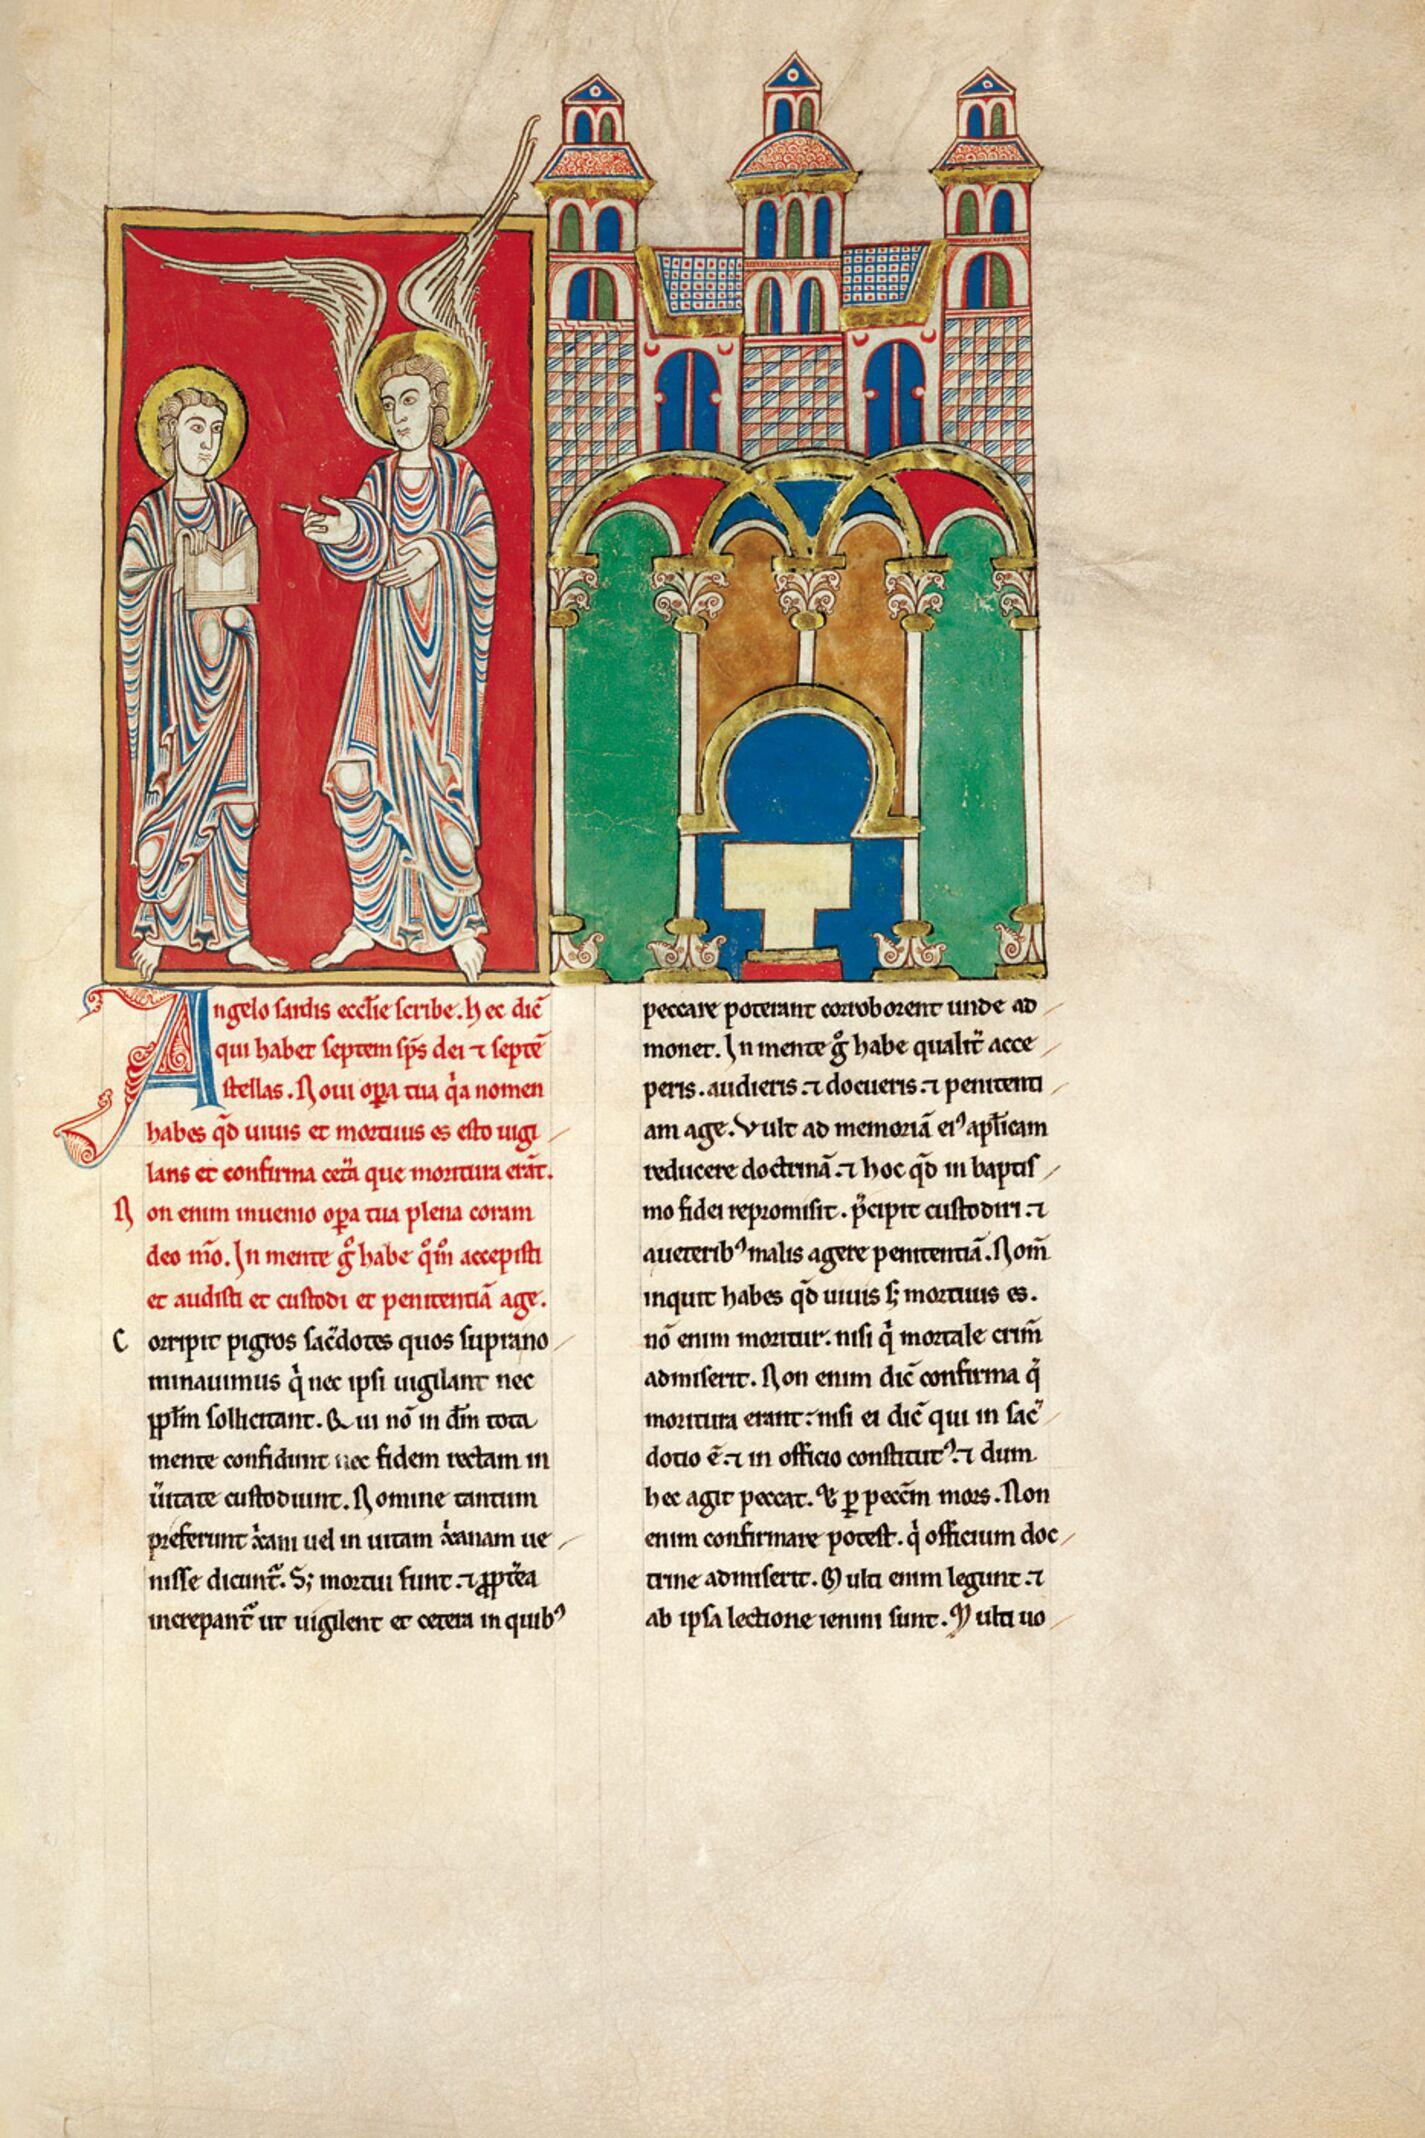 Angelo sardis ecclie scribe. Hec dic̄
qui habet septem sp̄s dei ⁊ septē
stellas. Noui opa tua qa nomen
habes qd̄ uiuis et mortuus es esto uigi
lans et confirma cetā que moritura erāt.
Non enim inuenio opa tua plena coram
deo mō. In mente g̊ habe qm̊ accepisti
et audisti et custodi et penitentiā age.
Corripit pigros sacdotes quos supra no
minauimus qi nec ipsi uigilant nec
pp̄lm sollicitant. Qui nō in dm̄ tota
mente confidunt nec fidem rectam in
uitate custodiunt. Nomine tantum
preferunt xam uel in uitam xanam ue
nisse dicunt. S; mortui sunt. ⁊ ppt̄ea
increpant ut uigilent et cetera in quibꝰ
peccare poterant corroborent unde ad
monet. In mente g̊ habe qualit acce
peris. audieris. ⁊ docueris. ⁊ penitenti
am age. Vult ad memoriā eiꝰ aplicam
reducere doctrinā. ⁊ hoc qd̄ in baptis
mo fidei repromisit. pcipit custodiri. ⁊
a ueteribꝰ malis agere penitentiā. Nom̄
inquit habes qd̄ uiuis s; mortuus es.
nō enim moritur. nisi qi mortale crim̄
admiserit. Non enim dic̄ confirma q̄
moritura erant: nisi ei dic̄ qui in sac
dotio ē. ⁊ in officio constitutꝰ. ⁊ dum
hec agit peccat. & p pecc̄m mors. Non
enim confirmare potest. qi officium doc
trine admiserit. Multi enim legunt. ⁊
ab ipsa lectione ieiuni sunt. Multi uo